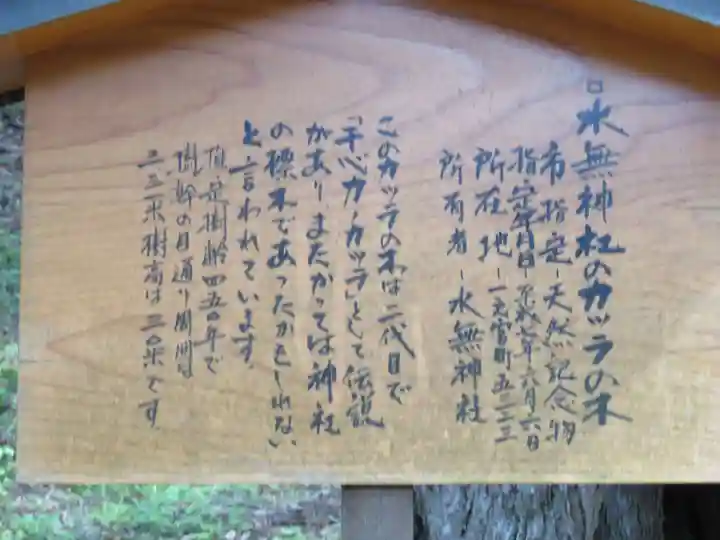 水無神社のカツラの木
市指定-天然記念物
指定年月日-平成 年六月六日
所在地-一之宮町五三二三
所有者-水無神社
このカツラの木は二代目で
「千心カノカツラ」として伝説
がありまたかつては神社
の標木であったかもしれない
と言われています。
推定樹齢四五〇年で
樹幹の目通り周囲は
二.五一米樹高は三〇米です。